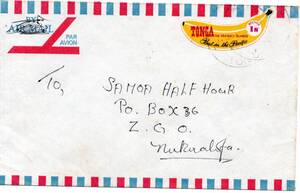 BY
AIR MAIL
PAR
AVION
TONGA
THE FRIENDLY ISLANDS
Best in the Pacific
To,
SAMOA HALF HOUR
P.O. BOX 36
Z.G.O.
Nukualofa.